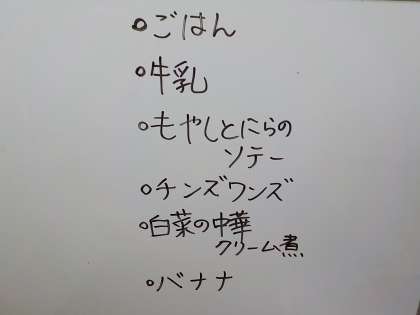 ○ごはん
○牛乳
○もやしとにらの
ソテー
○チンズワンズ
○白菜の中華
クリーム煮
○バナナ